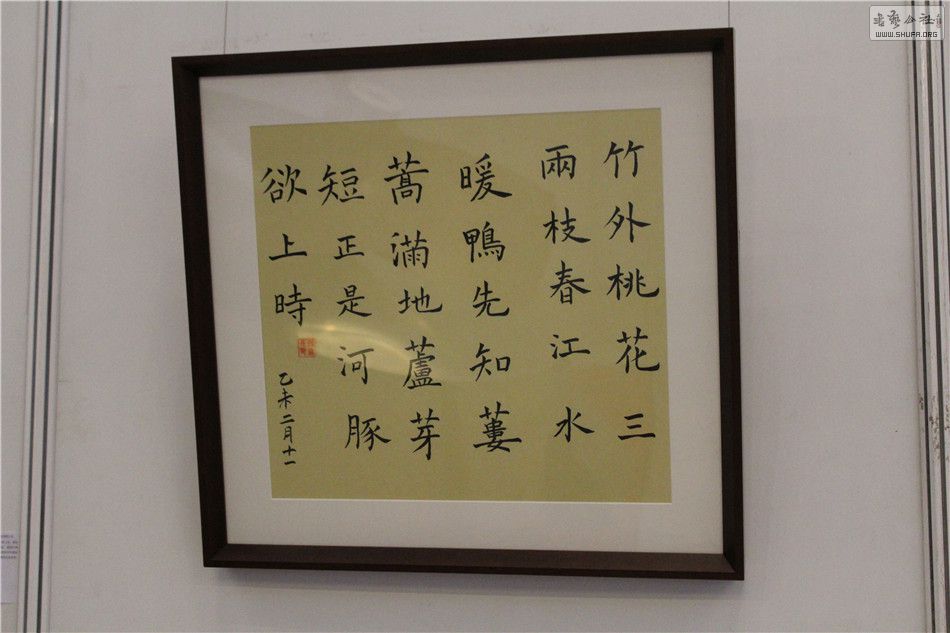 竹外桃花三
兩枝春江水
暖鴨先知蔞
蒿滿地蘆芽
短正是河豚
欲上時
乙未二月十一
书艺公社
WWW.SHUFA.ORG